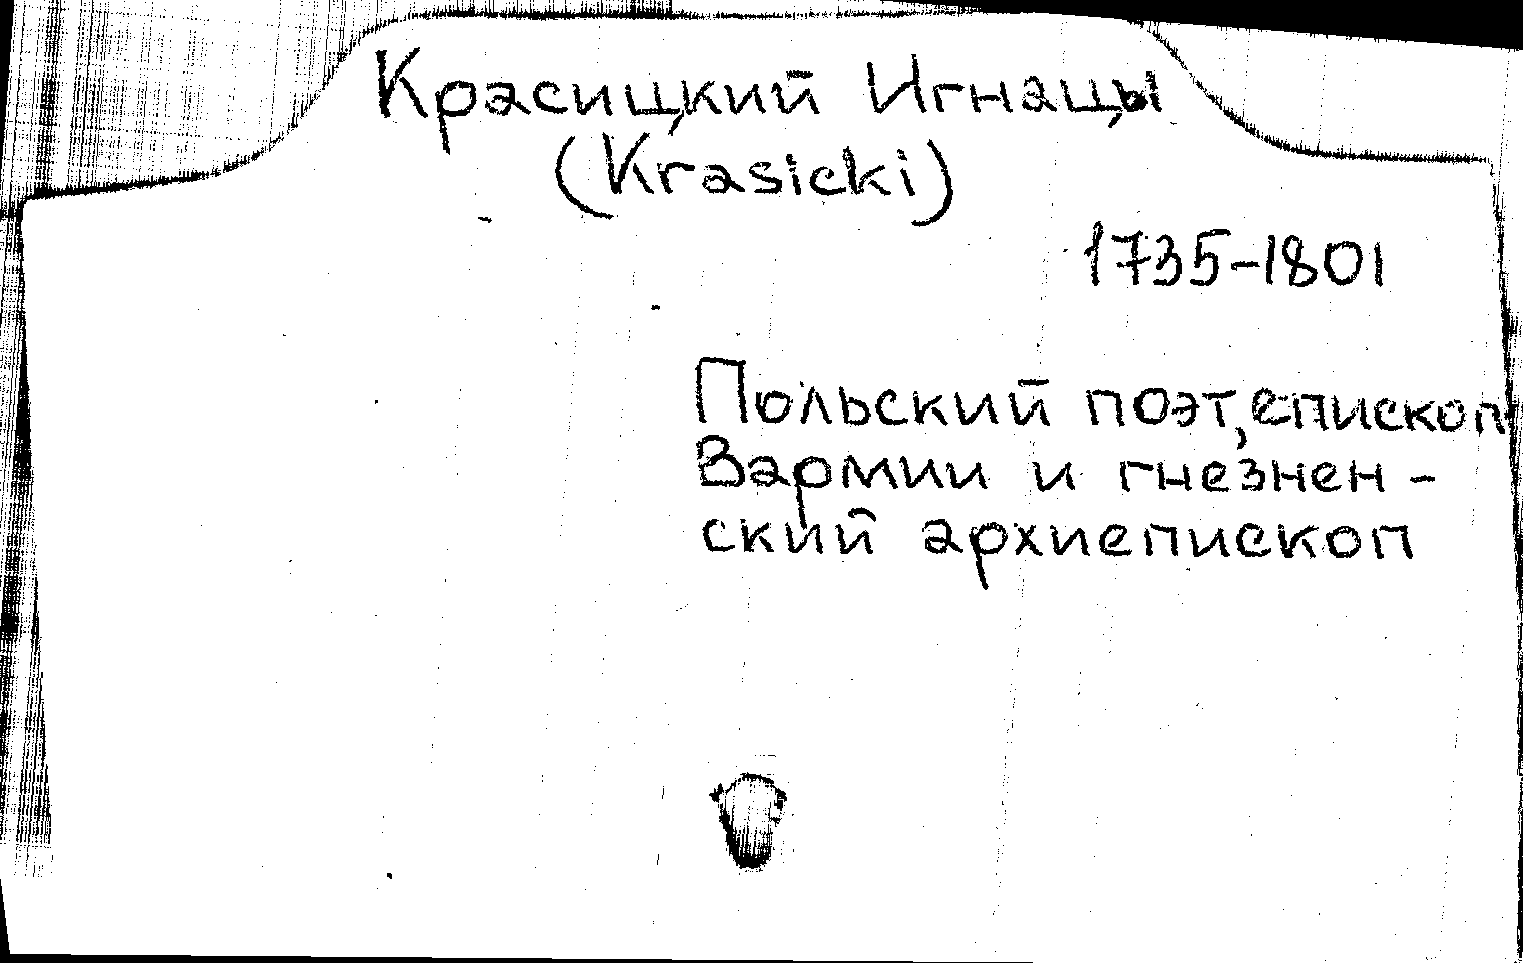 Красицкий Игнацы
(Krasicki)
1735-1801
Польский поэт, епископ
Вармии и гнезнен-
ский архиепископ